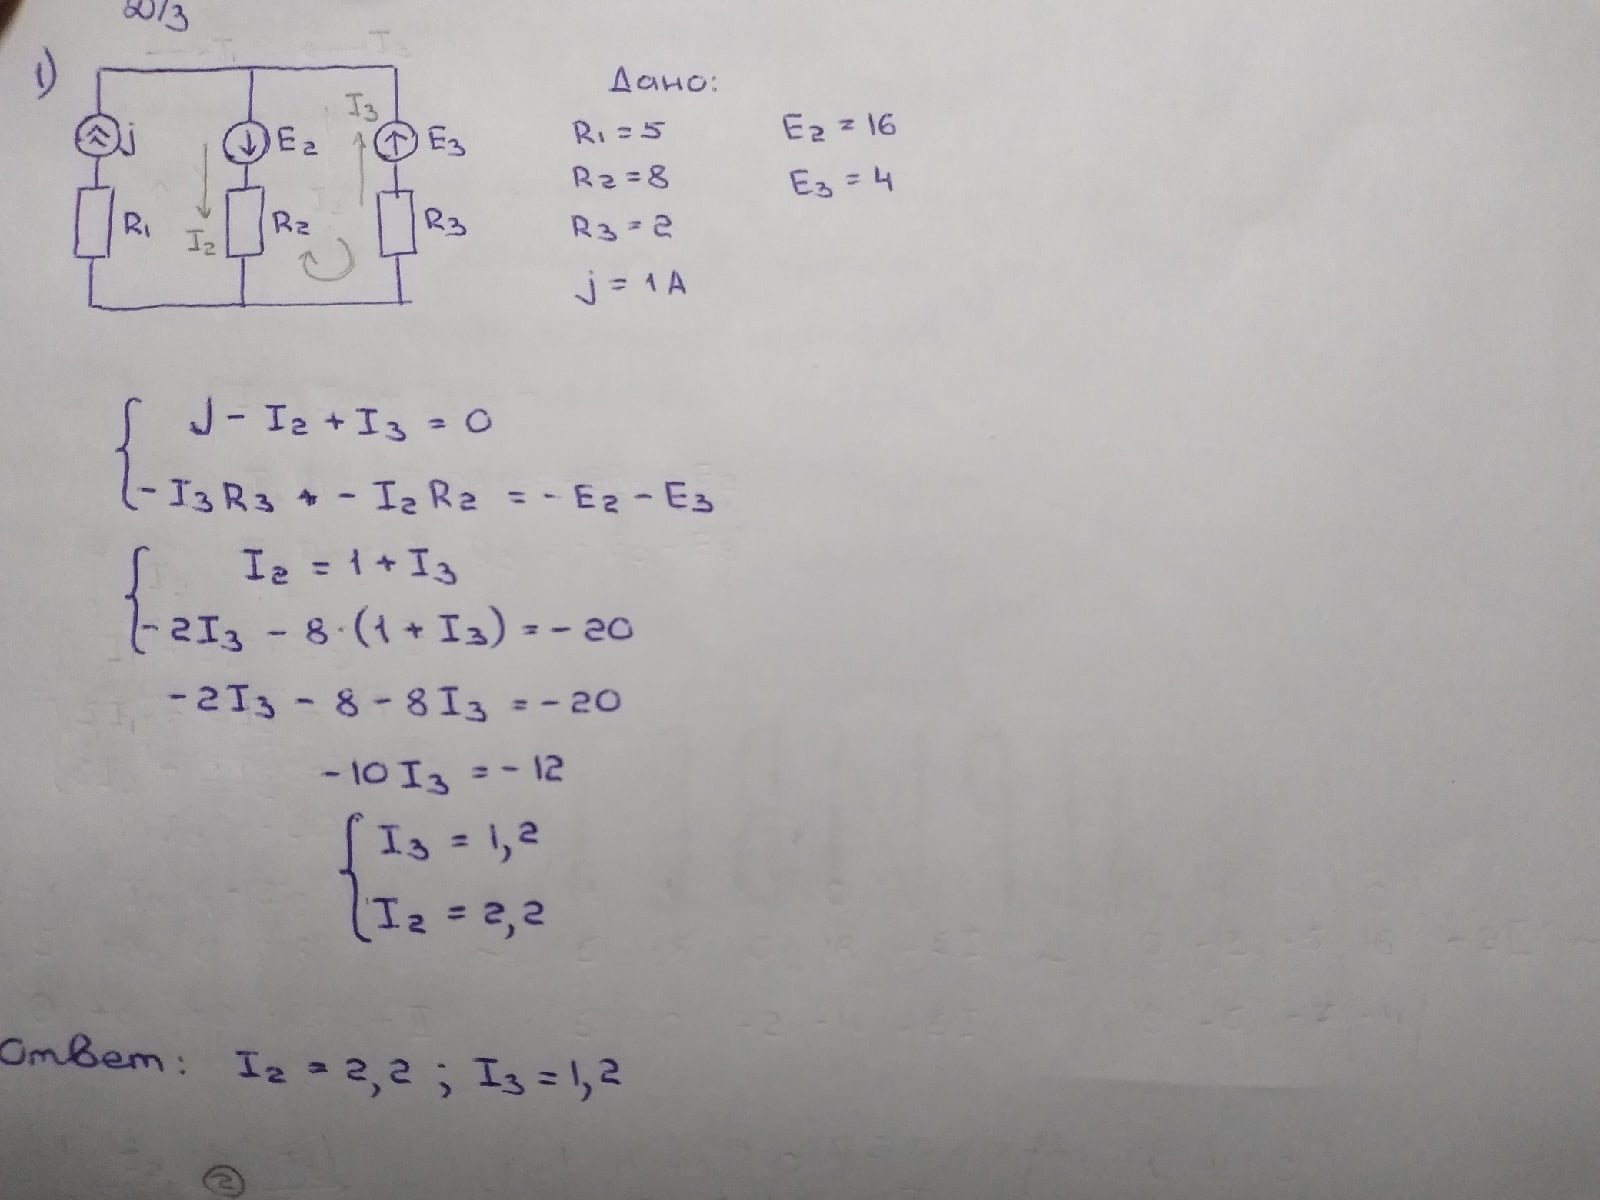 Д/З
1)
I3
j E2 E3
R1 I2 R2 R3
Дано:
R1 = 5 E2 = 16
R2 = 8 E3 = 4
R3 = 2
j = 1 A
J - I2 + I3 = 0
- I3 R3 - I2 R2 = - E2 - E3
I2 = 1 + I3
- 2I3 - 8·(1 + I3) = - 20
- 2I3 - 8 - 8I3 = - 20
- 10 I3 = - 12
I3 = 1,2
I2 = 2,2
Ответ: I2 = 2,2 ; I3 = 1,2
2